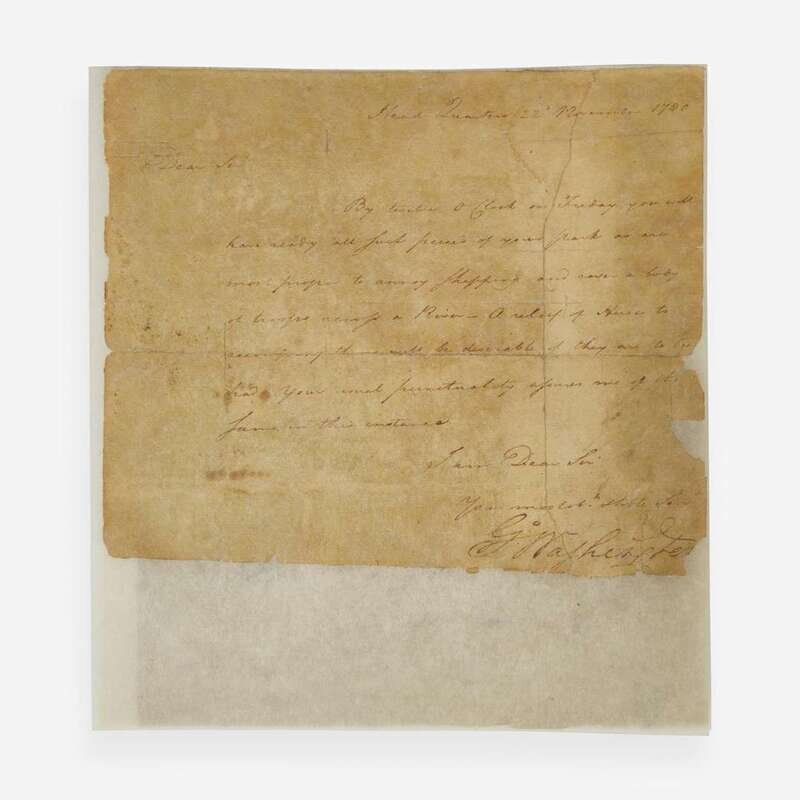 Head Quarters 22d November 1780
Dear Sir
By twelve O Clock on Friday you will
have ready all such pieces of your park as are
most proper to annoy shipping and cover a body
of troops across a River – A relief of Horses to
these will be desirable if they are to be
had. Your usual punctuality assures me of the
same in this instance
I am Dear Sir
Your most Obt. Hble Ser
Go: Washington